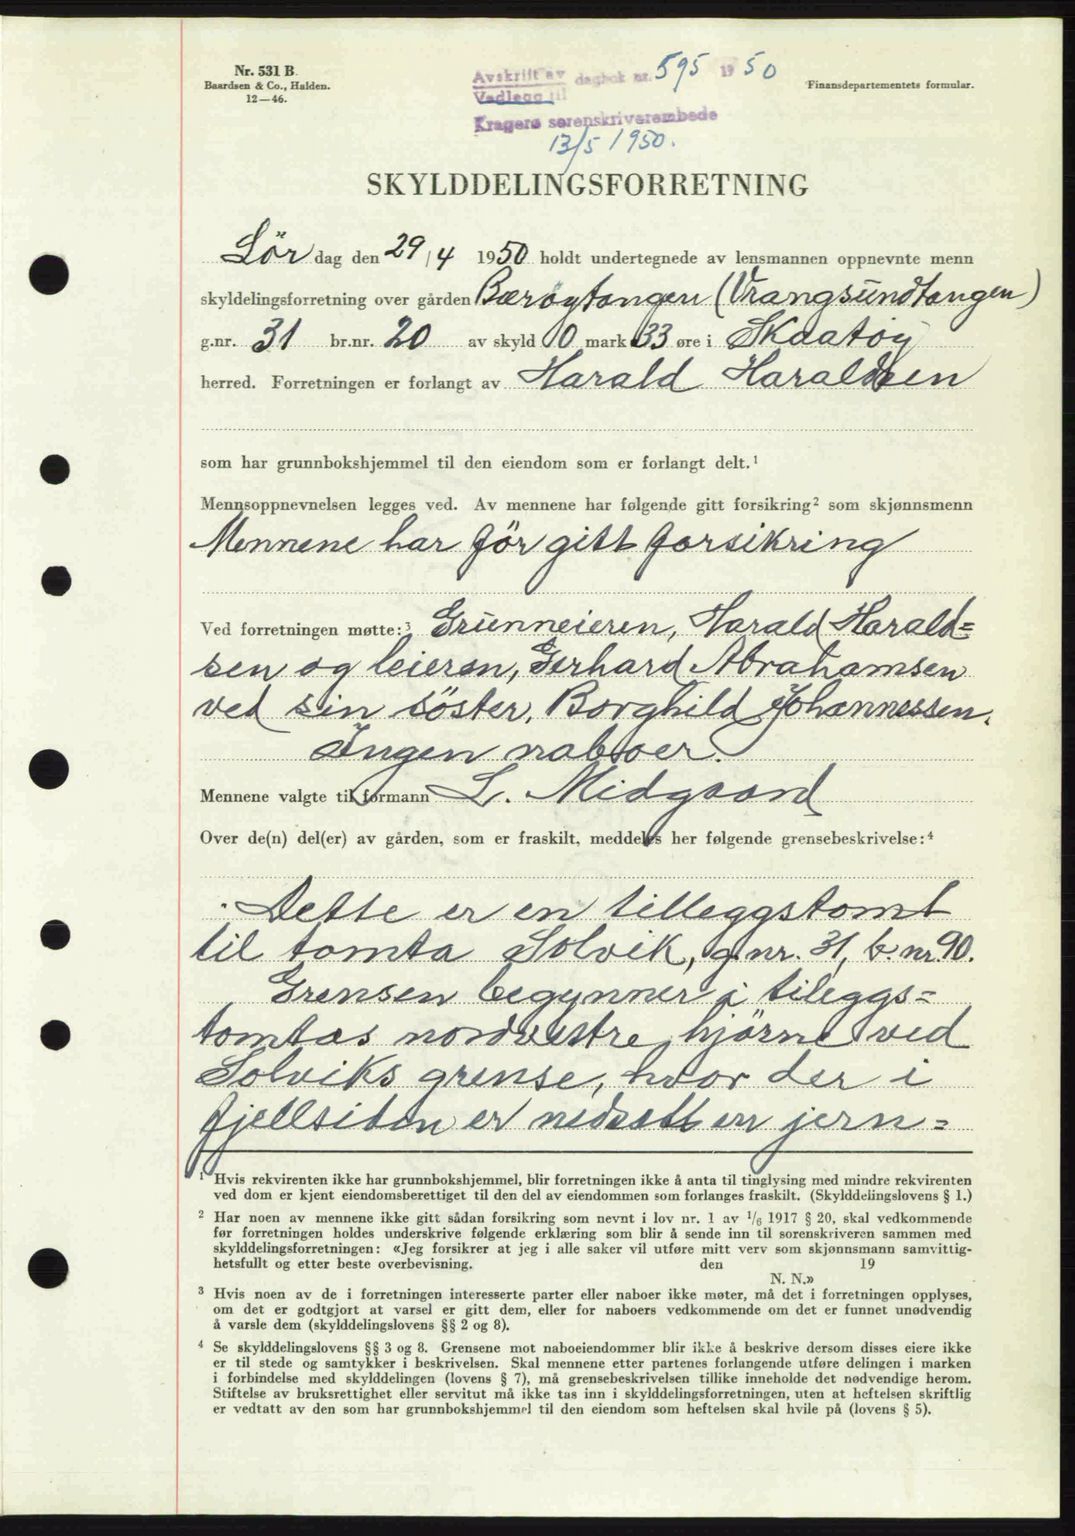 Nr. 531 B.
Baardsen & Co., Halden.
12—46.
Avskrift av dagbok nr. 595 1950
Vedlegg til
Kragerø sorenskriverembede
13/5 1950.
Finansdepartementets formular.
SKYLDDELINGSFORRETNING
Lör dag den 29/4 1950 holdt undertegnede av lensmannen oppnevnte menn
skyldelingsforretning over gården Bærøytangen (Vrangsundtangen)
g.nr. 31 br.nr. 20 av skyld 0 mark 33 øre i Skaatøy
herred. Forretningen er forlangt av Harald Haraldsen
som har grunnbokshjemmel til den eiendom som er forlangt delt.¹
Mennsoppnevnelsen legges ved. Av mennene har følgende gitt forsikring² som skjønnsmenn
Mennene har för gitt forsikring
Ved forretningen møtte:³ Grunneieren, Harald Harald=
sen og leieren, Gerhard Abrahamsen
ved sin söster, Borghild Johannessen.
Ingen naboer.
Mennene valgte til formann L. Midgaard
Over de(n) del(er) av gården, som er fraskilt, meddeles her følgende grensebeskrivelse:⁴
Dette er en tilleggstomt
til tomta Solvik, g.nr. 31, b.nr. 90.
Grensen begynner i tileggs=
tomtas nordvestre hjörne ved
Solviks grense, hvor der i
fjellsiden er nedsatt en jern=
¹ Hvis rekvirenten ikke har grunnbokshjemmel, blir forretningen ikke å anta til tinglysing med mindre rekvirenten
ved dom er kjent eiendomsberettiget til den del av eiendommen som forlanges fraskilt. (Skylddelingslovens § 1.)
² Har noen av mennene ikke gitt sådan forsikring som nevnt i lov nr. 1 av 1/6 1917 § 20, skal vedkommende
før forretningen holdes underskrive følgende erklæring som blir å sende inn til sorenskriveren sammen med
skylddelingsforretningen: «Jeg forsikrer at jeg i alle saker vil utføre mitt verv som skjønnsmann samvittig-
hetsfullt og etter beste overbevisning. den 19
N. N.»
³ Hvis noen av de i forretningen interesserte parter eller naboer ikke møter, må det i forretningen opplyses,
om det er godtgjort at varsel er gitt dem, eller for naboers vedkommende om det er funnet unødvendig
å varsle dem (skylddelingslovens §§ 2 og 8).
⁴ Se skylddelingslovens §§ 3 og 8. Grensene mot naboeiendommer blir ikke å beskrive dersom disses eiere ikke
er til stede og samtykker i beskrivelsen. Skal mennene etter partenes forlangende utføre delingen i marken
i forbindelse med skylddelingen (lovens § 7), må grensebeskrivelsen tillike inneholde det nødvendige herom.
Stiftelse av bruksrettighet eller servitut må ikke tas inn i skylddelingsforretningen, uten at heftelsen skriftlig
er vedtatt av den som har grunnbokshjemmel til den eiendom som heftelsen skal hvile på (lovens § 5).